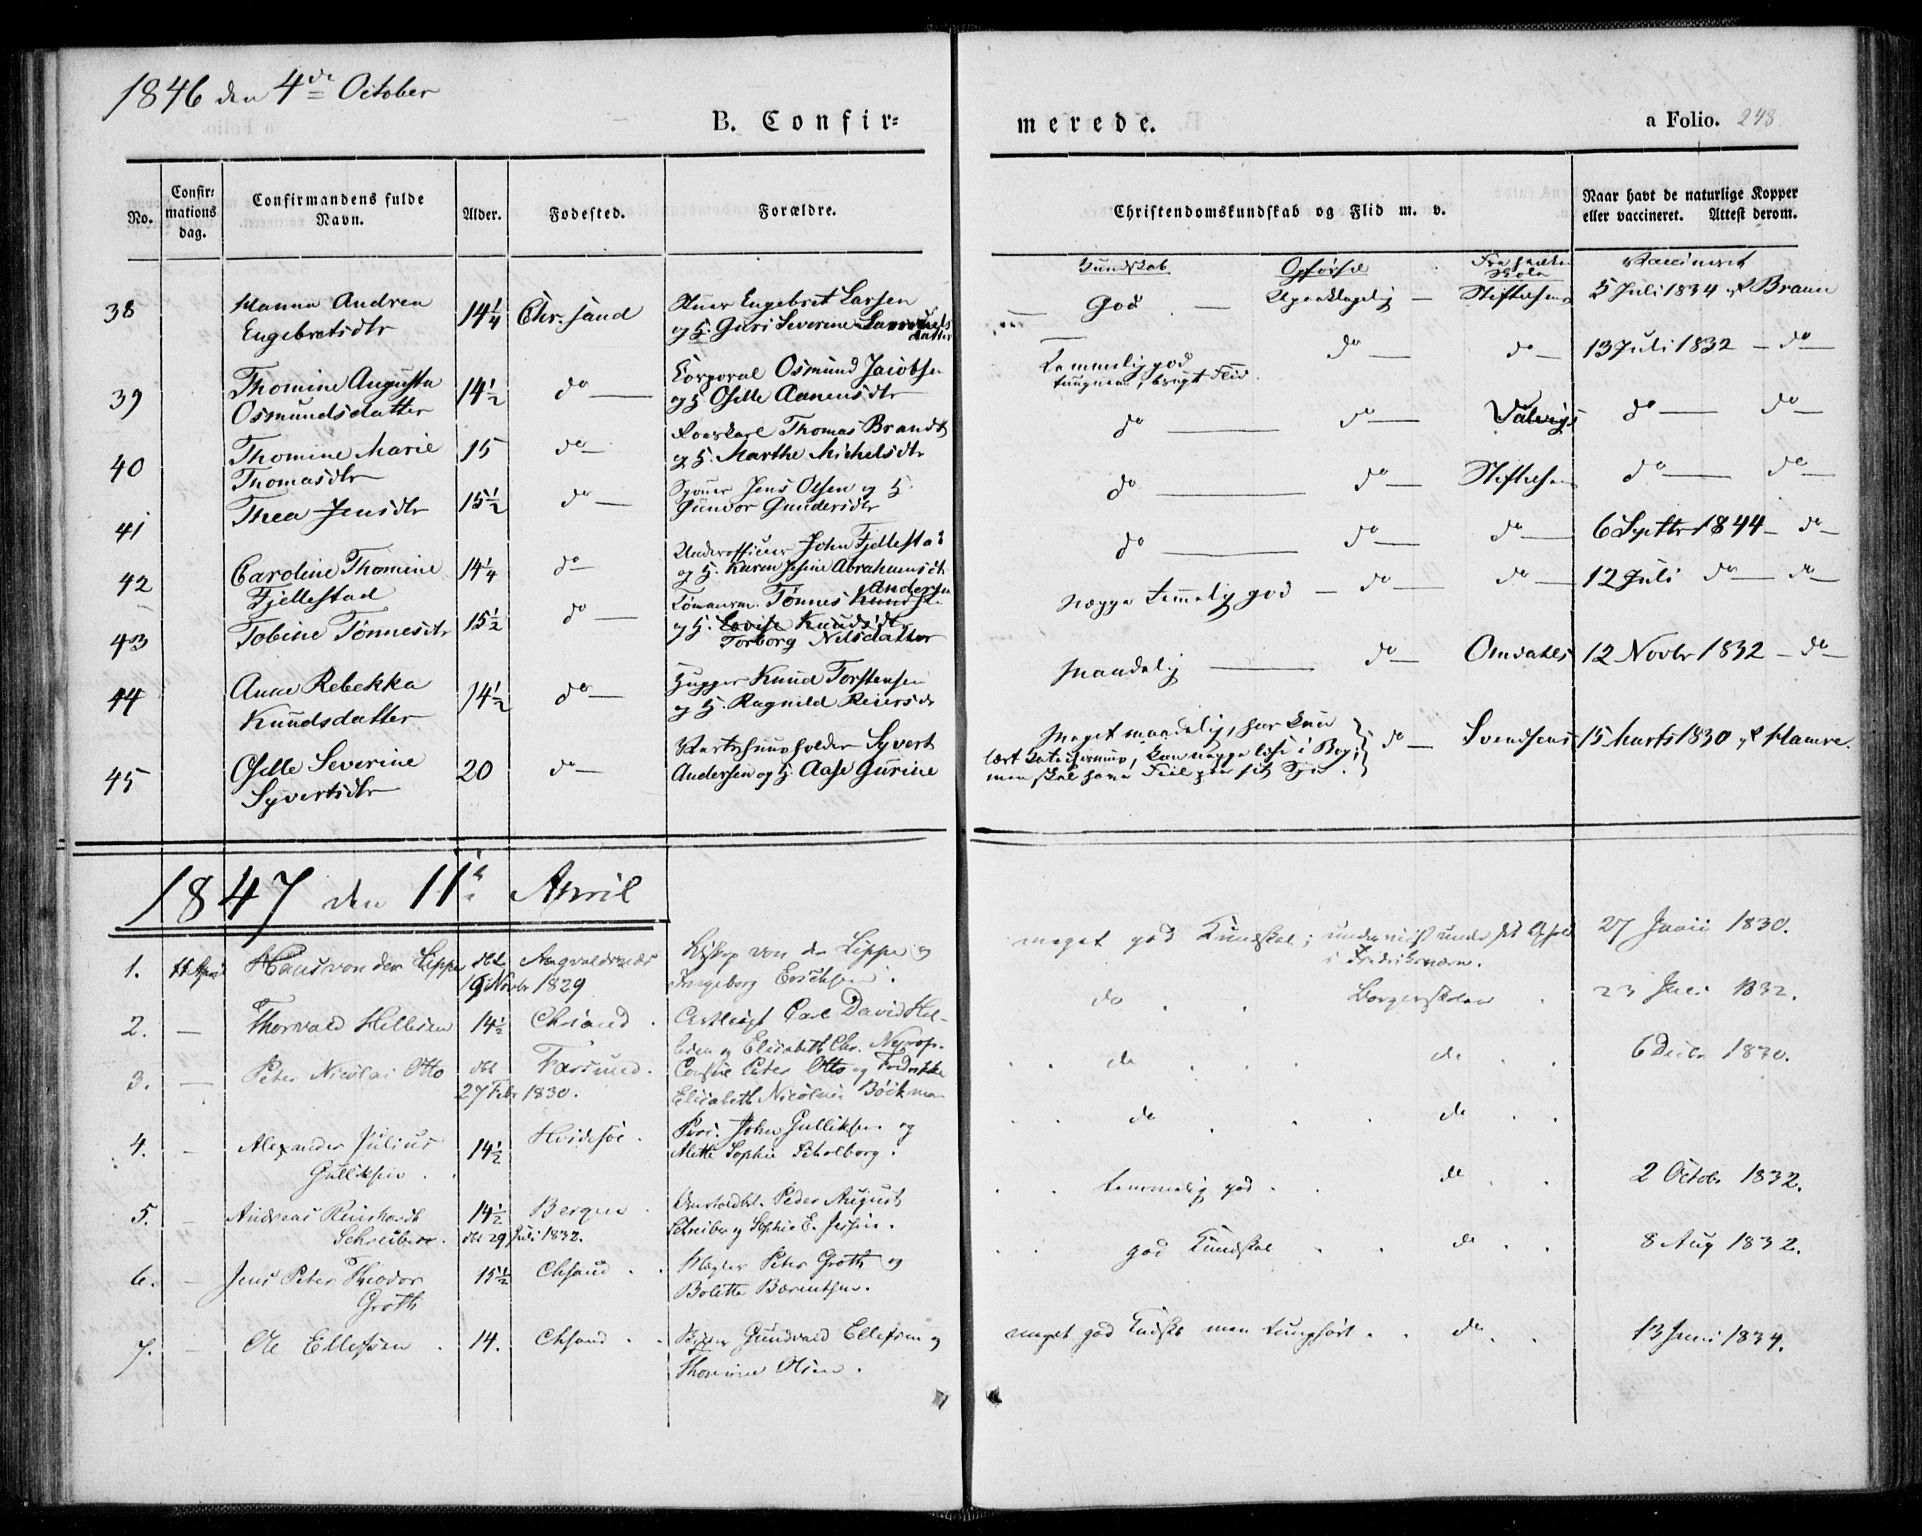 1846 den 4de October
B. Confir-
merede.
a Folio. 248
No.
Confir-
mations
dag.
Confirmandens fulde
Navn.
Alder.
Fødested.
Forældre.
Christendomskundskab og Flid m. v.
Naar havt de naturlige Kopper
eller vaccineret. Attest derom.
Kundskab
Opførsel
Skole
Vaccineret
38 Hanna Andrea 14 1/4 Chr.sand Engebret Larsen
Engebretsdtr og H. Guri Severine
datter
God — Upaaklagelig — Stiftelsens 5 Juli 1834 af Braun
39 Thomine Augusta 14 1/2 do — Corporal Osmund Jacobsen
Osmundsdatter og H. Oselle Aanensdtr
Temmelig god do — do — 13 Juli 1832 — do —
brugt Flid.
40 Thomine Marie 15 do — Thomas Brandt
Thomasdtr og H. Marthe Michelsdtr
do — do — do — do —
41 Thea Jensdtr 15 1/2 do — Jens Olsen og H.
Gunvor Gundersdtr
do — do — Stiftelsens do — do —
42 Caroline Thomine 14 1/4 do — Underofficier John Fjellestad
Fjellestad og H. Karen Jesine Abrahamsdtr
do — do — do — 6 Septbr 1844 — do —
43 Tobine Tønnesdtr 15 1/2 do — Tømmerm. Tønnes Knudsen
Andersen
og H. Lovise Knudsdtr
Torborg Nilsdatter
neppe temmelig god — do — do — 12 Juli do — do —
44 Anne Rebekka 14 1/2 do — Knud Torstensen
Knudsdatter og H. Ragnild Reiersdtr
Maadelig — do — Omdahls 12 Novbr 1832 — do —
45 Oselle Severine 20 do — Syvert
Syvertsdtr Andersen og H. Aase Gurine
Meget maadelig, har kun
lært Katechismus, kan neppe læse i Bog;
men skal have
do — Svendsens 15 Marts 1830 af Hamre.
1847 den 11te April
1. 11 April Hans von der Lippe dbt Augvaldsnæs Biskop von der Lippe og
19 Novbr 1829 Ingeborg Erichsen.
meget god Kundskab; underviist under sit Ophold 27 Junii 1830.
i Fredriksværn.
2. — Thorvald Hellesen 14 1/2 Chrsand. Carl David Hel-
lesen og Elisabeth Chr. Nyrop.
do Borgerskolen 23 Juli 1832.
3. — Peter Nicolai Otto dbt Farsund. Consul Peter Otto og Fredrikke
27 Febr 1830. Elisabeth Nicoline Böckman
do do 6 Decbr 1830.
4. — Alexander Julius 14 1/2 Hvidesøe. John Gulliksen og
Gulliksen. Mette Sophie Scholborg.
do do
5. — Andreas Reinhardt 14 1/2 Bergen. Peder August
Schreiber. dbt 29 Juli 1832. Schreiber og Sophie E. Jessen.
temmelig god do 2 Octobr 1832.
6. — Jens Peter Theodor 15 1/2 Chsand. Mægler Peter Groth og
Groth Bolette Bærentsen.
god Kundskab do 8 Aug 1832.
7. — Ole Ellefsen 14. Chsand. Gundvald Ellefsen og
Thomine Olsen.
meget god Kundsk. men tunghørt. do. 13 Juni 1834.